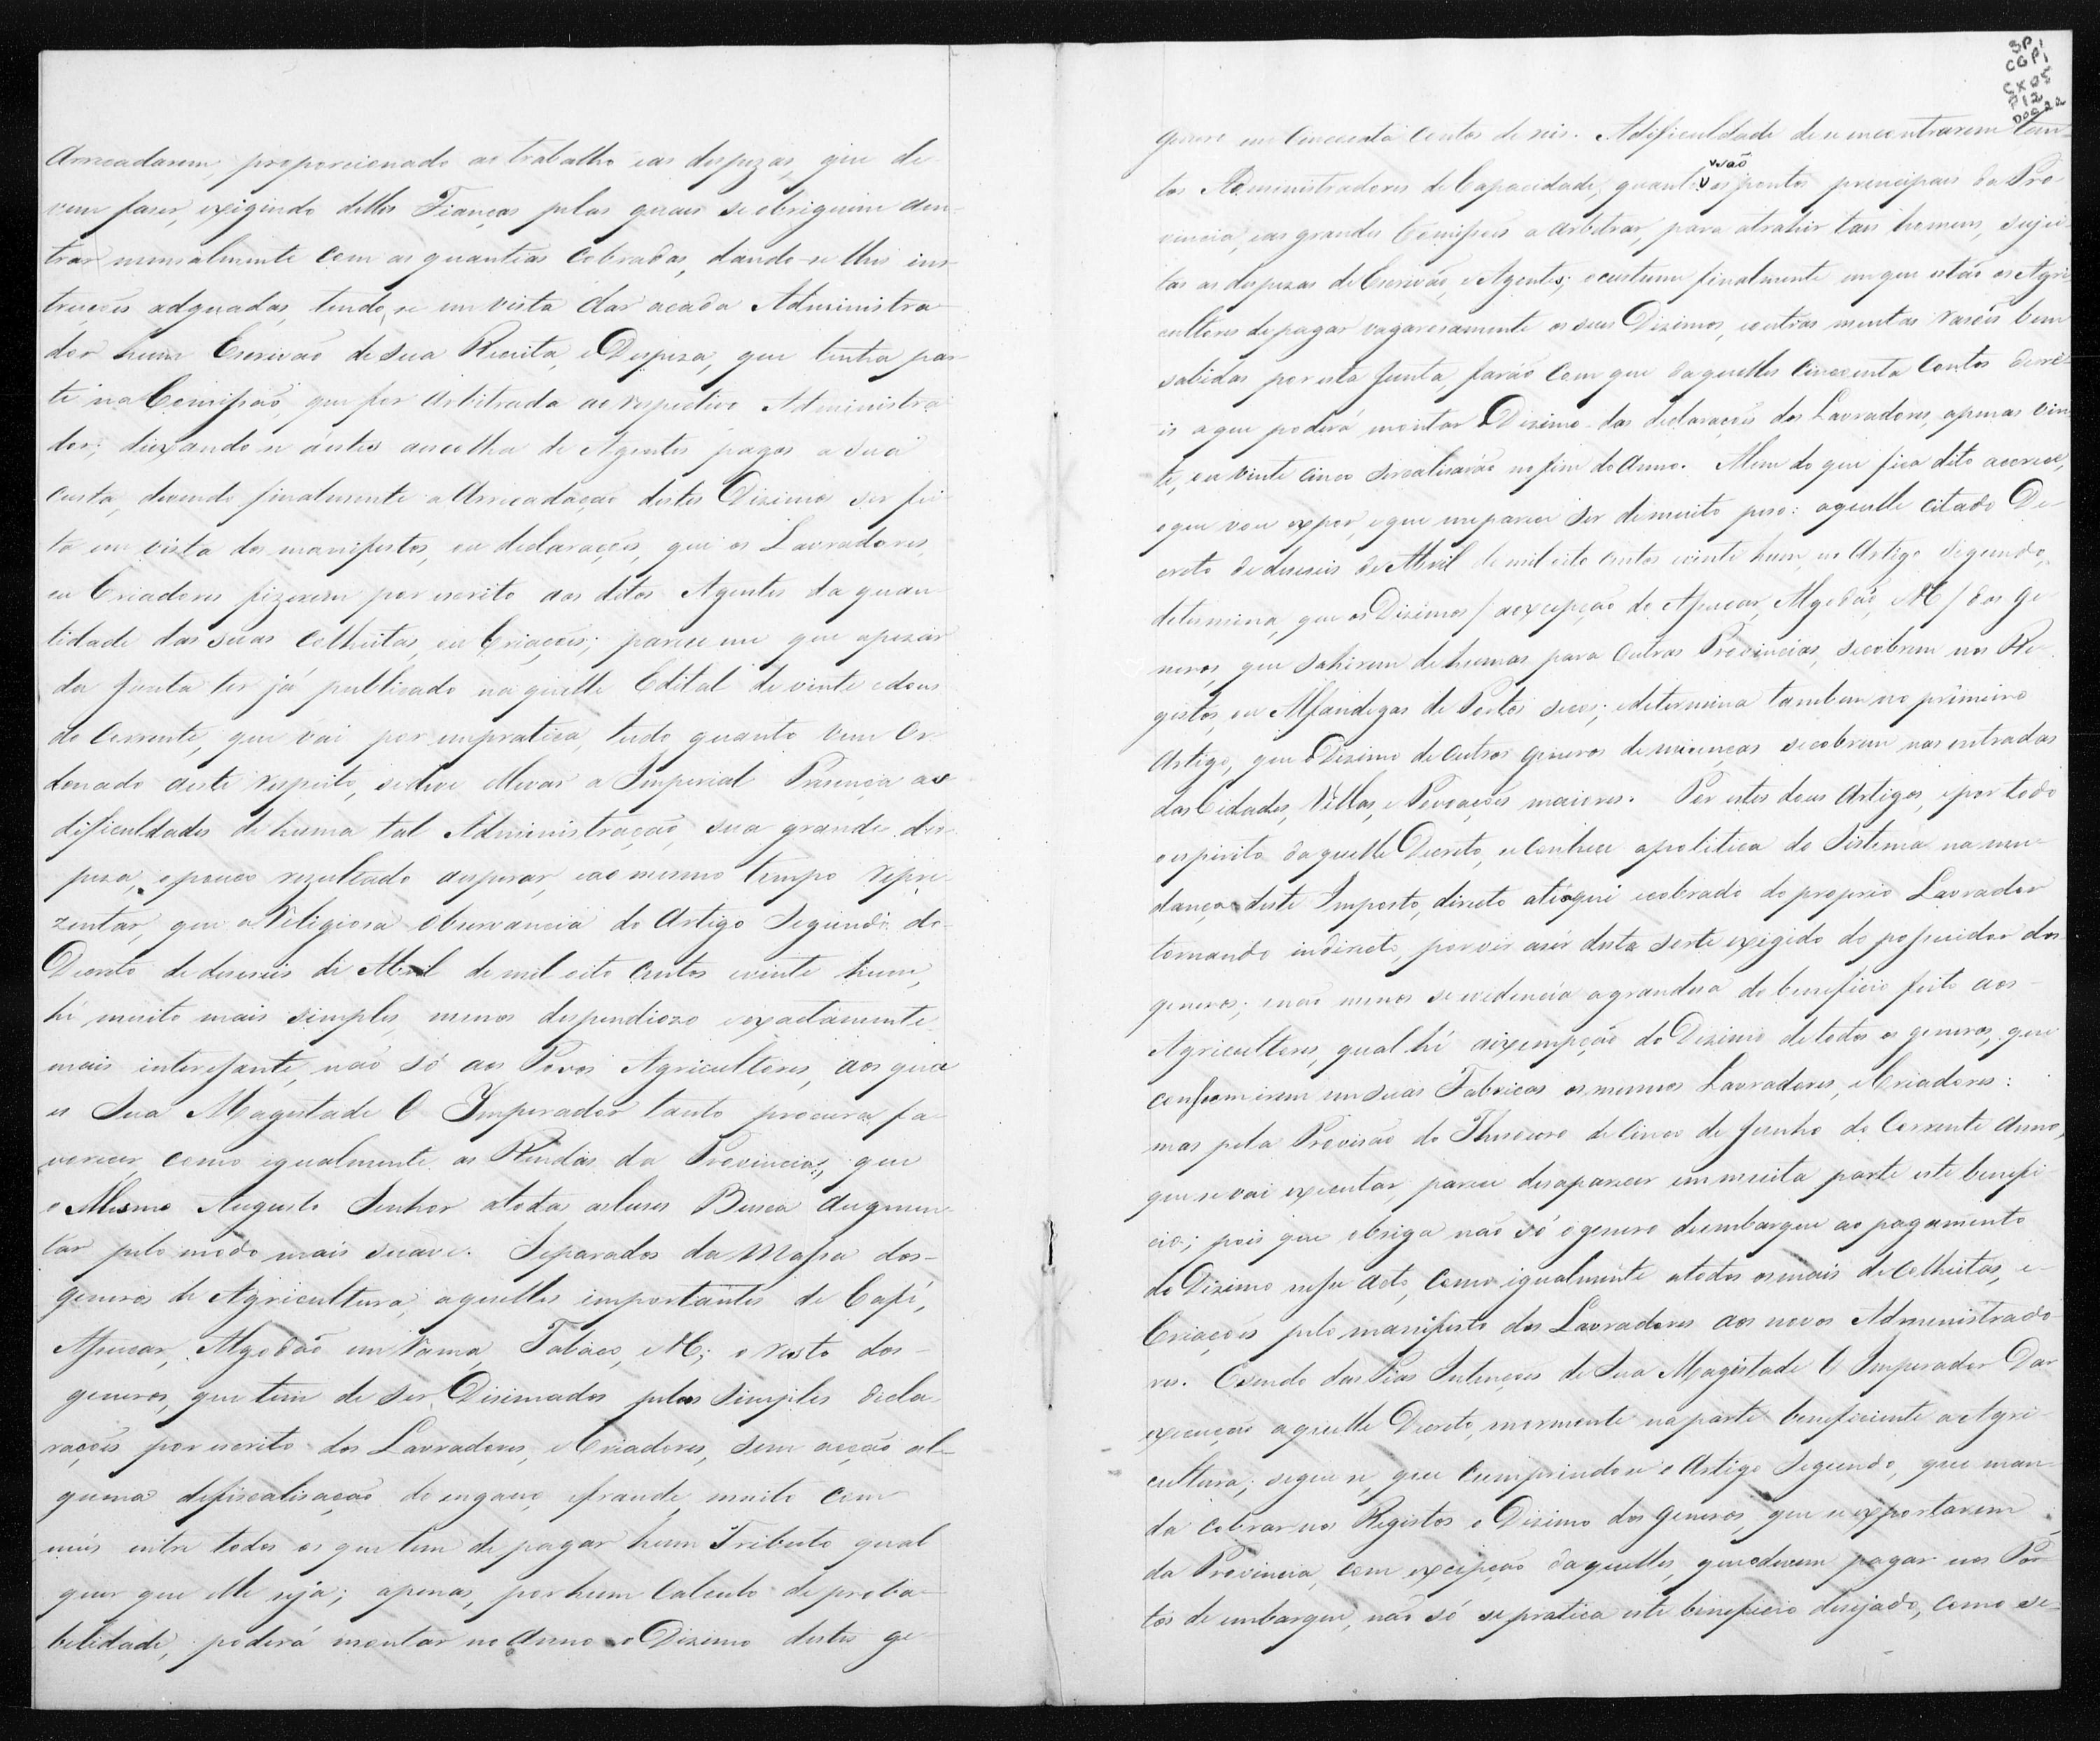 Arrecadarem, proporcionado ao trabalho e as despezas, que de
vem faser, exigindo delles Fianças pelas quais se obriguem a en
trar mensalmente com as quantias Cobradas, dando-se lhes ins
trucções adquadas, tendo se em vista dar acada Administra
dor hum Escrivão de Sua Receita, e Despeza, que tenha par
te na Comissão, que for Arbitrada ao respectivo Administra
dor; deixando-se á estes aescolha de Agentes pagos a sua
custa, devendo finalmente a Arrecadação destes Disimos ser fei
ta em vista dos manifestos, ou declarações, que os Lavradores,
ou Criadores fizerem por escrito aos ditos Agentes da quan
tidade das suas Colheitas, ou Criações; parece me que apezar
da Junta ter já publicado na quelle Edital de vinte e dous
do Corrente, que vai por em pratica, tudo quanto vem Or
denado aeste respeito, se deve elevar a Imperial Presença as
dificuldades de huma tal Administração, sua grande des
peza, e pouco rezultado aesperar, e ao mesmo tempo repre
zentar, que a Religiosa Observancia do Artigo Segundo do
Decreto de deseseis de Abril de mil oito centos e vinte hum,
hé muito mais simples, menos despendiozo e exactamente
mais interessante, não só aos Povos Agricultores, aos qua
es Sua Magestade O Imperador tanto procura fa
vorecer, como egualmente as Rendas da Provincia, que
o Mesmo Augusto Senhor atodas as luses Busca Augmen
tar pelo modo mais suave. Separados da Massa dos
generos de Agricultura, aquelles importantes de Café,
Assucar, Algodão em rama, Tabaco, &; o resto dos
generos, que tem de ser Disimados pelas Simples decla
rações por escrito dos Lavradores, e Criadores, sem acção al
guma defiscalisação do engano, e fraude, muito com
mús entre todos os que tem de pagar hum Tributo qual
quer que elle seja; apenas, por hum Calculo de proba
belidade, poderá montar no Anno o Disimo destes ge
SP1
CGP1
CX05
P12
DOC22a
neros em Cincoenta Contos de reis. Adificuldade de se encontrarem tan
vão
tos Administradores de Capacidade, quantos os pontos principais da Pro
vincia, e as grandes Comissões a Arbitrar, para atrahir tais homens, sujei
tos as despezas de Escrivão, e Agentes; ocustume finalmente emque estão os Agri
cultores de pagar vagarosamente os seus Disimos, e outras muitas rasões bem
sabidas por esta Junta, farão Com que daquelles Cincoenta Contos de re
is aque poderá montar O Disimo das declarações dos Lavradores, apenas vin
te, ou vinte cinco se realisarão no fim do Anno. Alem do que fica dito accresce,
oque vou expor, e que me parece ser de muito peso: aquelle citado De
creto de deseseis de Abril de mil oito centos e vinte hum, no Artigo segundo,
determina, que os Disimos / aexcepção do Assucar, Algodão, & / dos ge
neros, que sahirem de humas para Outras Provincias, secobrem nos Re
gistos, ou Alfandegas de Portos secos; edetermina tambem no primeiro
Artigo, que o Disimo de outros generos de miunças se cobrem nas entradas
das Cidades, Villas, e Povoações maiores. Por estes dous Artigos, e por todo
o espirito daquelle Decreto, se Conhece apolitica do Sistema na mu
dança deste Imposto, directo atéqui ecobrado do proprio Lavrador
tornando indirecto, por vir aser desta sorte exigido do possuidor dos
generos; enão menos se evidencia agrandesa do beneficio feito aos
Agricultores, qual hé aixempção do Desimo de todos os generos, que
confsomirem em suas Fabricas os mesmos Lavradores, e Criadores:
mas pela Provisão do Thesouro de Cinco de Junho do Corrente Anno,
que se vai executar, parece desaparecer em muita parte este benefi
cio; pois que obriga não só ogenero deembarque ao pagamento
do Disimo nesse Acto, como igualmente atodos os mais de Colheitas, e
Criações pelo manifesto dos Lavradores aos novos Administrado
res. Esendo das Pias Intenções de Sua Magestade O Imperador Dar
execução aquelle Decreto, mormente na parte beneficiente a Agri
cultura; segue se, que Cumprindo se o Artigo Segundo, que man
da cobrar nos Registos o Disimo dos generos, que se exportarem
da Provincia, com excepção daquelles, que o devem pagar nos Por
tos de embarque, não só se pratica este beneficio desejado, Como se